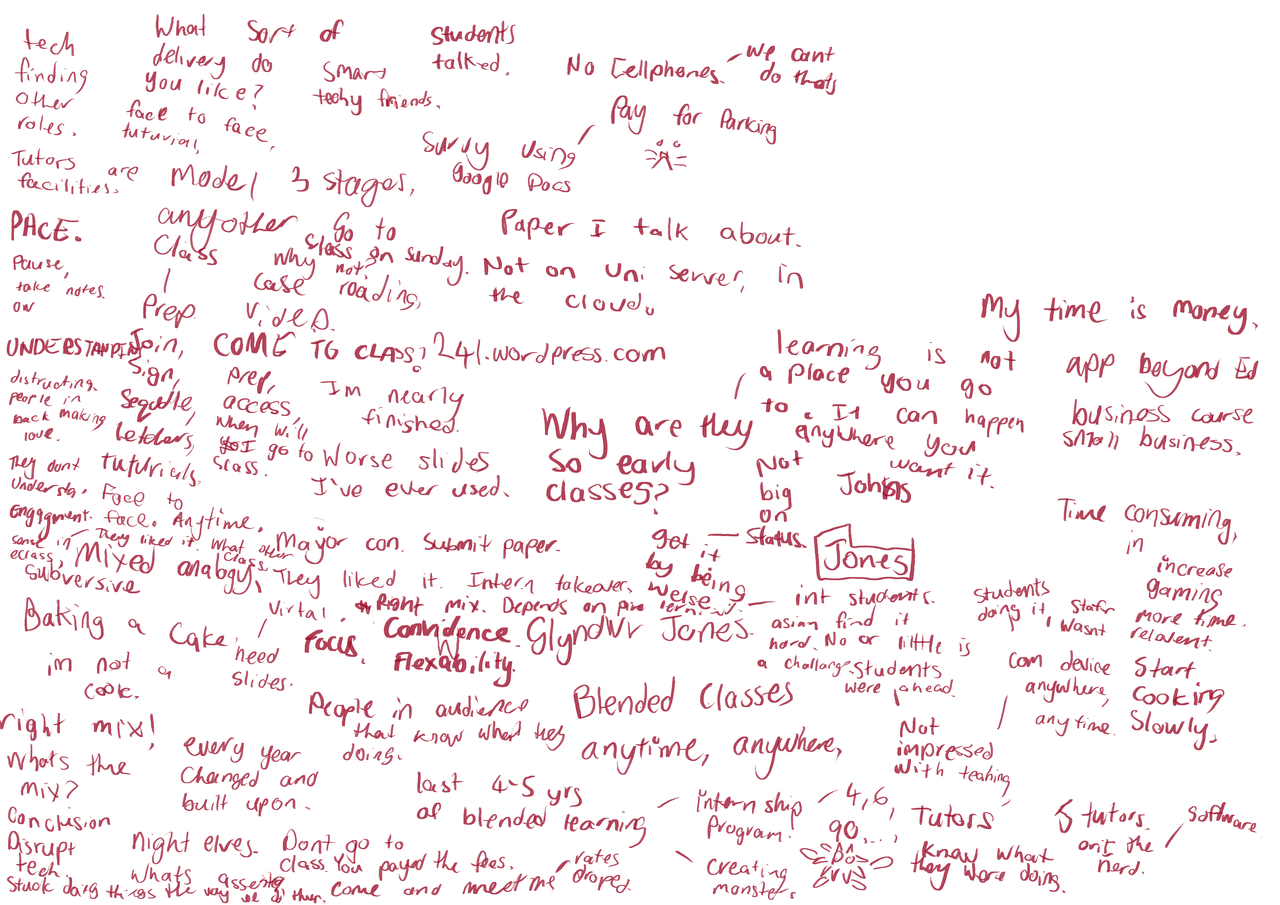 tech
finding
other
roles.
What Sort of
delivery do
you like?
face to face,
tuturial,
Students
talked.
Smart
techy friends.
No Cellphones.
We cant
do thats
Pay for Parking
Survy using
google Docs
Tutors are
facilities.
Model 3 stages,
PACE.
Pause,
take notes.
ow
any other
Class
Prep
Go to
Slass on Sunday.
Why not?
case roading,
video.
Paper I talk about.
Not on Uni server, in
the cloud.
My time is money.
UNDERSTANDING
distructing.
people in
back making
love.
They dont
Understa.
Join,
Sign,
Sequtle,
Letchers,
tuturials,
Face to
face. Anytime.
COME TO CLASS? 241.wordpress.com
prep,
access,
When will
I go to
Slass.
Im nearly
finished.
Worse slides
I've ever used.
learning is not
a place you go
to. It can happen
anywhere you
want it.
app beyond Ed
business course
small business.
Why are they
so early
classes?
Not
big
on
Status.
Johns
Jones
Engagement.
sense in
eclass,
They liked it. What other
Class.
Mayor con. Submit paper.
get it
by being
welse
Time consuming,
in
increase
gaming
more time.
relavent.
Mixed analogy,
Subversive
They liked it. Intern takeover,
Virtal
Right mix. Depends on
int students.
asian find it
hard. No or little is
a challang.
students
were ahead.
Students
doing it,
Stafr
wasnt
Baking a Cake
im not a
cook.
need
slides.
Focus.
Convidence
Flexability.
Glyndwr Jones
Blended Classes
anytime, anywhere,
com device
anywhere,
any time.
Start
Cooking
Slowly,
People in audience
that know what they
doing.
right mix!
Whats the
mix?
every year
changed and
built upon.
last 4-5 yrs
of blended learning
Not
impressed
With teahing
internship
Program!
4,6,
90...,
creating
monsters
Tutors
Know what
they were doing.
5 tutors.
on't the
nerd.
Software
Conclusion
Disrupt
tech.
Stuck doing things the way
Night elves.
Whats
Dont go to
class. You payed the fees.
Come and meet me
rates
droped.